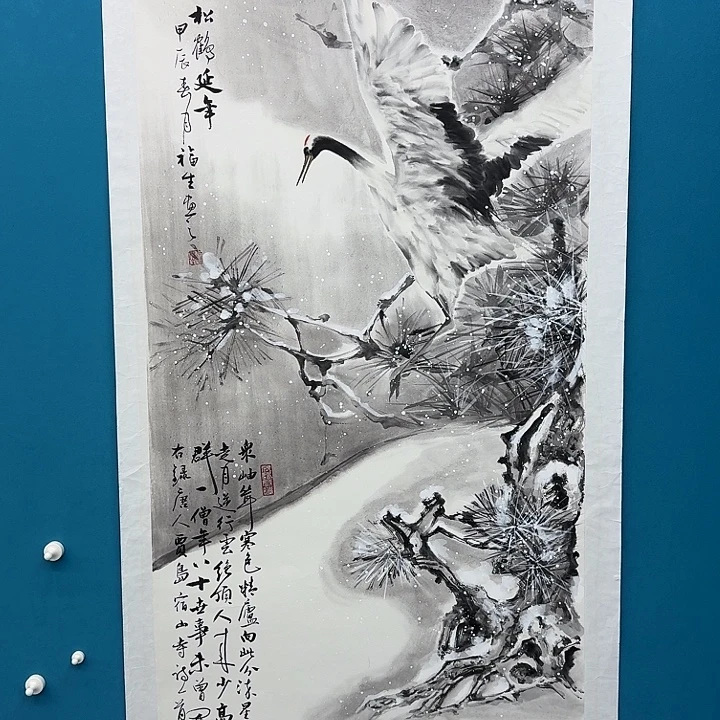 松鶴延年
甲辰春月福生画之
衆岫聳寒色精廬向此分流星
走月逆行雲絶頂人来少高
群一僧年八十世事未曾
右録唐人賈島宿山寺詩一首